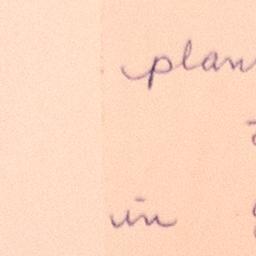 plan
in